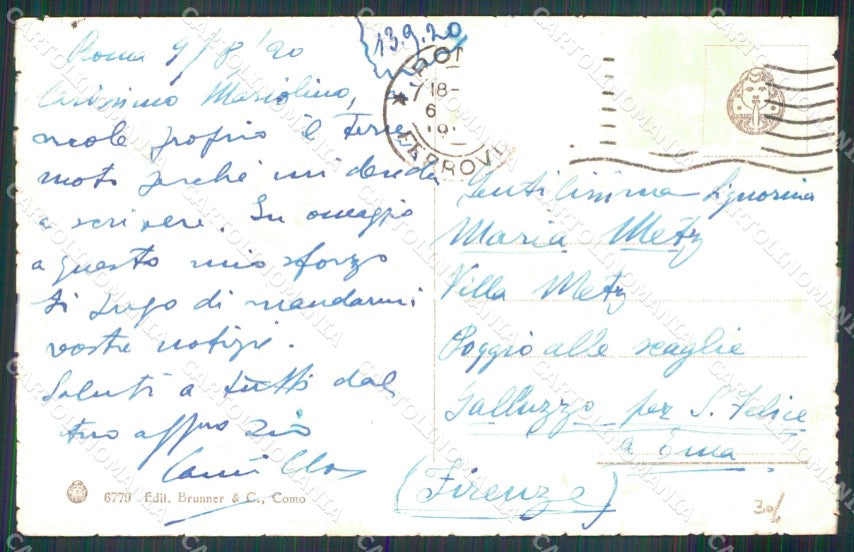 Roma 9/8/20
Carissimo Mariolino,
vuole proprio il terre
moto perché mi decida
a scrivere. In omaggio
a questo mio sforzo
ti prego di mandarmi
vostre notizie.
Saluti a tutti dal
tuo affmo zio
13.9.20
ROM
18-
6
FERROVI
Gentilissima Signorina
Maria Metz
Villa Metz
Poggio alle scaglie
Galluzzo per S. Felice
a Ema
(Firenze)
6779 Edit. Brunner & C., Como
CARTOLINOMANIA